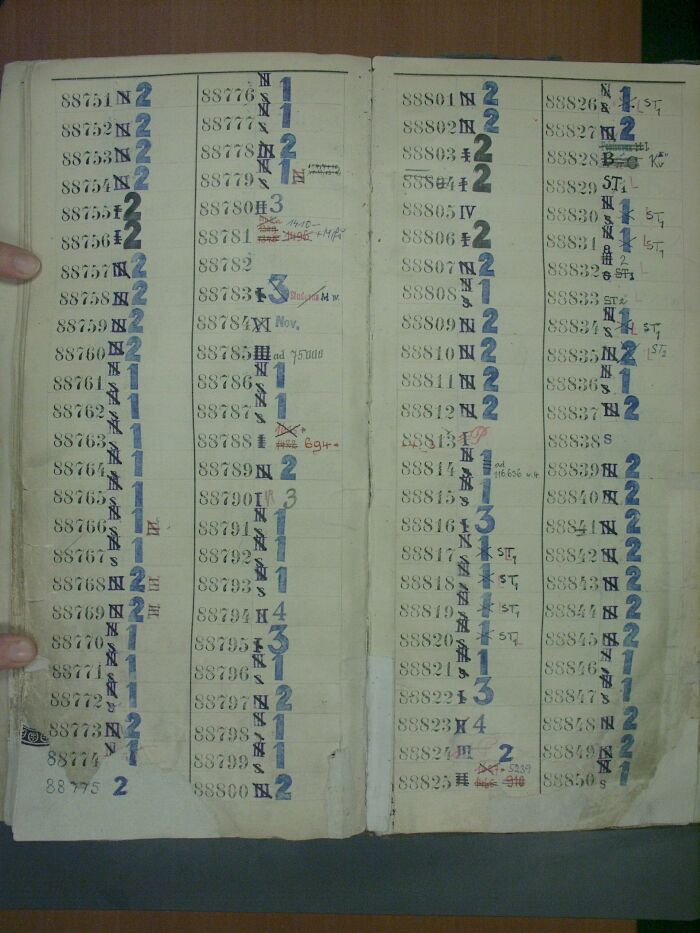 88751 N 2
88752 N 2
88753 N 2
88754 N 2
88755 I 2
88756 I 2
88757 N 2
88758 N 2
88759 N 2
88760 N 2
88761 N S 1
88762 N S 1
88763 N S 1
88764 N S 1
88765 N S 1
88766 N S 1 III
88767 N S 1
88768 N 2 III
88769 N 2 III
88770 N S 1
88771 N S 1
88772 N S 1
88773 N 2
88774 N S 1
88775 2
88776 N S 1
88777 N S 1
88778 N 2
88779 N S 1 III
88780 II 3
88781 1410
88782
88783 I 3 M W.
88784 XI Nov.
88785 III ad 75000
88786 N S 1
88787 N S 1
88788 I 694
88789 N 2
88790 I 3
88791 N S 1
88792 N S 1
88793 N S 1
88794 II 4
88795 I 3
88796 N S 1
88797 N 2
88798 N S 1
88799 N S 1
88800 N 2
88801 N 2
88802 N 2
88803 I 2
88804 I 2
88805 IV
88806 I 2
88807 N 2
88808 N S 1
88809 N 2
88810 N 2
88811 N 2
88812 N 2
88813 I
88814 N S 1 ad 116.656
88815 N S 1
88816 I 3
88817 N S 1 ST1
88818 N S 1 ST1
88819 N S 1 ST1
88820 N S 1 ST1
88821 N S 1
88822 I 3
88823 II 4
88824 III 2
88825 II 5239
88826 N S 1 L ST1
88827 N 2
88828 B C Kv
88829 ST1 L
88830 N S 1 ST1
88831 N S 1 L ST1
88832 III 2 S ST1 L
88833 ST2 L
88834 N S 1 L ST1
88835 N 2 L ST2
88836 N S 1
88837 N 2
88838 S
88839 N 2
88840 N 2
88841 N 2
88842 N 2
88843 N 2
88844 N 2
88845 N 2
88846 N S 1
88847 N S 1
88848 N 2
88849 N 2
88850 N S 1